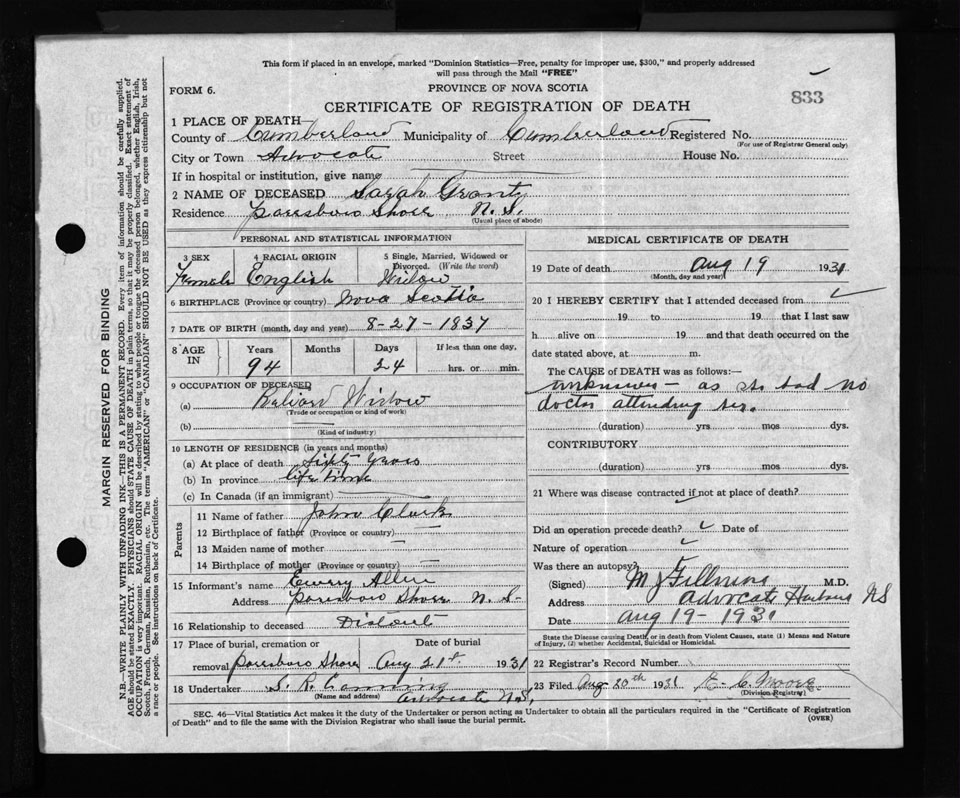 This form if placed in an envelope, marked "Dominion Statistics—Free, penalty for improper use, $300," and properly addressed
will pass through the Mail "FREE"
FORM 6.
PROVINCE OF NOVA SCOTIA
833
CERTIFICATE OF REGISTRATION OF DEATH
1 PLACE OF DEATH—
County of Cumberland Municipality of Cumberland Registered No.
(For use of Registrar General only)
City or Town Advocate Street House No.
If in hospital or institution, give name
2 NAME OF DECEASED Sarah Grant
Residence Parrsboro Shore N. S.
(Usual place of abode)
PERSONAL AND STATISTICAL INFORMATION
3 SEX 4 RACIAL ORIGIN 5 Single, Married, Widowed or
Divorced. (Write the word)
Female English Widow
6 BIRTHPLACE (Province or country) Nova Scotia
7 DATE OF BIRTH (month, day and year) 8-27-1837
8 AGE IN Years Months Days If less than one day,
94 24 hrs. or min.
9 OCCUPATION OF DECEASED
(a) Widow
(Trade or occupation or kind of work)
(b)
(Kind of industry)
10 LENGTH OF RESIDENCE (in years and months)
(a) At place of death years
(b) In province life time
(c) In Canada (if an immigrant)
Parents
11 Name of father John Clark
12 Birthplace of father (Province or country)
13 Maiden name of mother
14 Birthplace of mother (Province or country)
15 Informant's name Allen
Address Parrsboro Shore N. S-
16 Relationship to deceased Distant
17 Place of burial, cremation or Date of burial
removal Parrsboro Shore Aug 21st 1931
18 Undertaker S. R. Canning
(Name and address) Advocate N.S.
MEDICAL CERTIFICATE OF DEATH
19 Date of death Aug 19 1931
(Month, day and year)
20 I HEREBY CERTIFY that I attended deceased from
19 to 19 that I last saw
h alive on 19 and that death occurred on the
date stated above, at m.
The CAUSE of DEATH was as follows:—
unknown — as she had no
doctor attending her.
(duration) yrs. mos. dys.
CONTRIBUTORY
(duration) yrs. mos. dys.
21 Where was disease contracted if not at place of death?
Did an operation precede death? Date of
Nature of operation
Was there an autopsy?
(Signed) M.D.
Address Advocate Harbour NS
Date Aug 19-1931
State the Disease causing Death, or in death from Violent Causes, state (1) Means and Nature
of Injury, (2) whether Accidental, Suicidal or Homicidal.
22 Registrar's Record Number
23 Filed Aug 20th 1931 E. C. Moore
(Division Registrar)
SEC. 46—Vital Statistics Act makes it the duty of the Undertaker or person acting as Undertaker to obtain all the particulars required in the "Certificate of Registration
of Death" and to file the same with the Division Registrar who shall issue the burial permit.
(OVER)
MARGIN RESERVED FOR BINDING
N.B.—WRITE PLAINLY WITH UNFADING INK—THIS IS A PERMANENT RECORD. Every item of information should be carefully supplied.
AGE should be stated EXACTLY. PHYSICIANS should STATE CAUSE OF DEATH in plain terms, so that it may be properly classified. Exact statement of
OCCUPATION is very important. RACIAL ORIGIN will be described by stating to what people or tongue the deceased person belonged, whether English, Irish,
Scotch, French, German, Russian, Ruthenian, etc. The terms "AMERICAN" or "CANADIAN" SHOULD NOT BE USED as they express citizenship but not
a race or people. See instructions on back of Certificate.